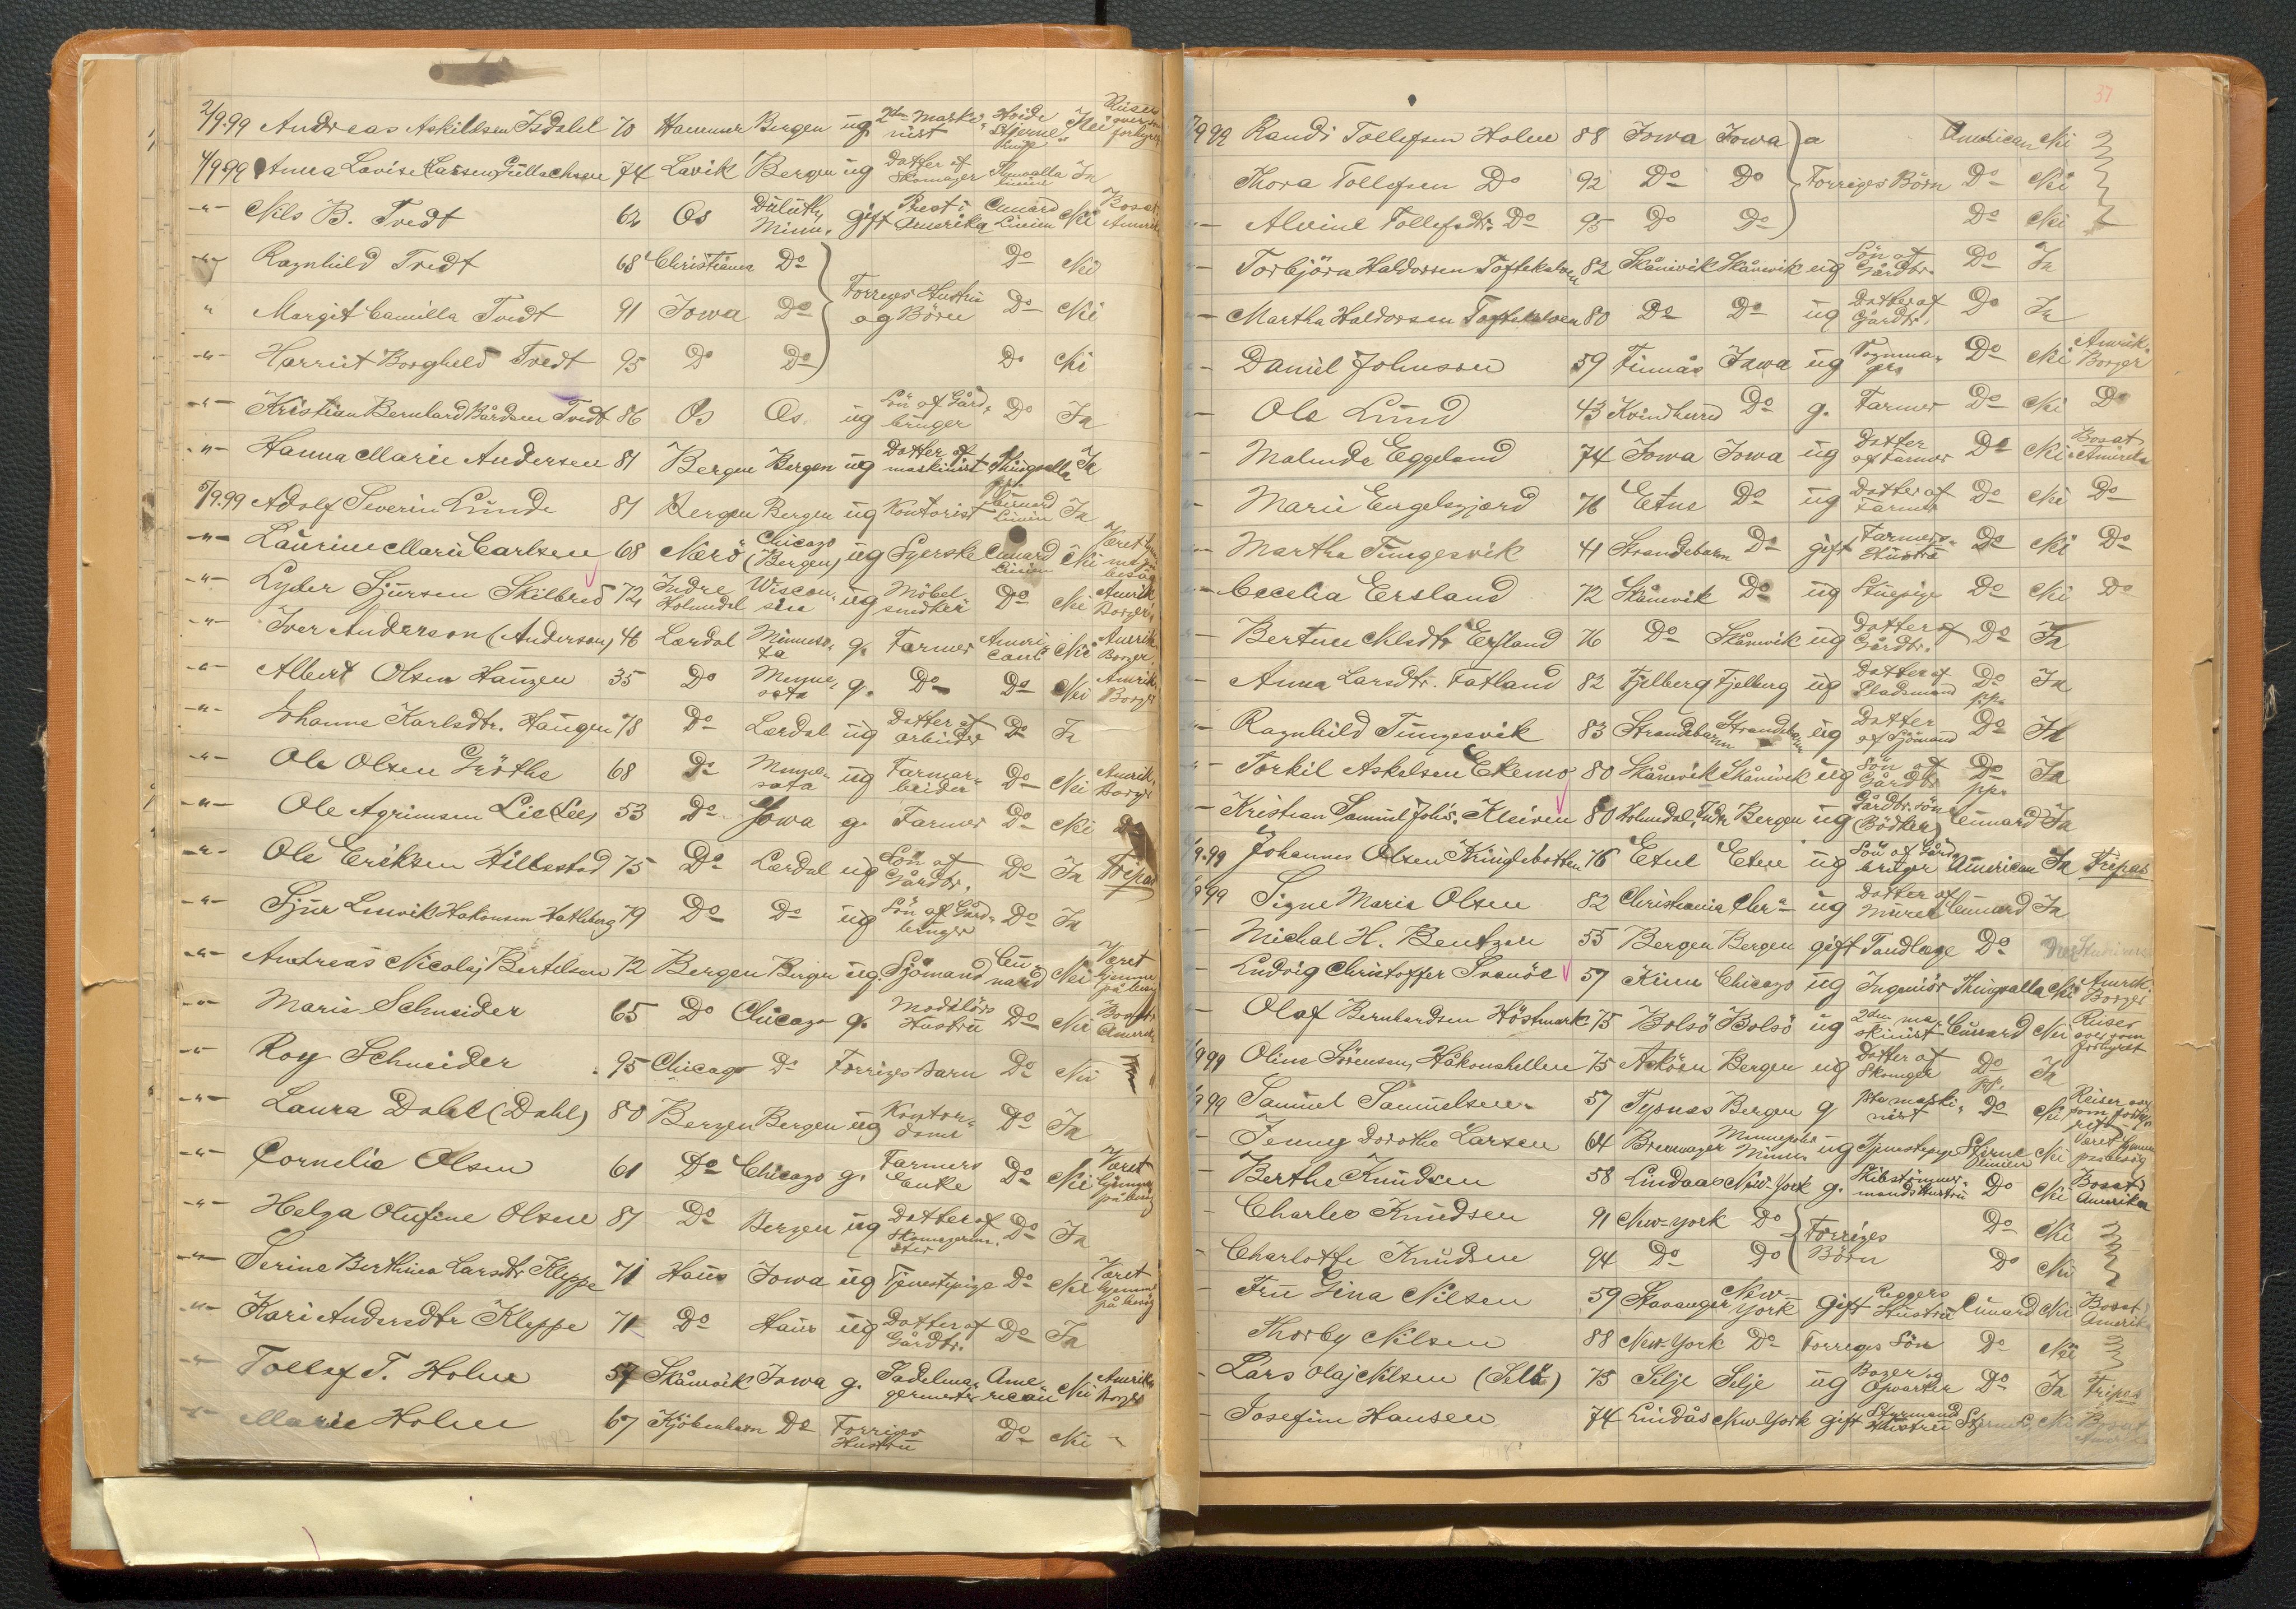 2/9.99 Andreas Askildsen Isdahl 70 Hammer Bergen ug. 2den Maski- nist Hvide Stjerne Linje Nei Reiser over som forhyret
4/9.99 Anna Lovise Larsen Gullachsen 74 Lavik Bergen ug Datter af Skomager Thingvalla Linien Ja
-"- Nils B. Tvedt 62 Os Duluth Minn. gift Prest i Amerika Cunard Linien Nei Bosat Amerika
-"- Ragnhild Tvedt 68 Christiania Do Do Nei
" Margit Camilla Tvedt 91 Iowa Do Forriges Hustru og Börn Do Nei
-"- Harriet Borghild Tvedt 95 Do Do Do Nei
-"- Kristian Bernhard Bårdsen Tvedt 86 Os Os ug Sön af Gård- bruger Do Ja
-"- Hanna Marie Andersen 81 Bergen Bergen ug Datter af maskinist Thingvalla pp. Ja
5/9.99 Adolf Severin Lunde 81 Bergen Bergen ug Kontorist Cunard Linien Ja
-"- Laurine Marie Carlsen 68 Nærö Chicago (Bergen) ug Syerske Cunard Linien Nei Været hjemme på besög
-"- Lyder Sjursen Skilbred 72 Indre Holmedal Wiscon- sin ug Möbel- snedker Do Nei Amerik. Borger
-"- Iver Anderson (Anderson) 46 Lærdal Minneso- ta g. Farmer Ameri- can Nei Amerik. Borger
-"- Albert Olsen Haugen 35 Do Minne- sota g. Do Do Nei Amerik. Borger
-"- Johanne Karlsdtr. Haugen 78 Do Lærdal ug Datter af arbeider Do Ja
-"- Ole Olsen Gröthe 68 Do Minne- sota ug Farmar- beider Do Nei Amerik. Borger
-"- Ole Agrimsen Lie (Lee) 53 Do Iowa g. Farmer Do Nei Do
-"- Ole Eriksen Hillestad 75 Do Lærdal ug Sön af Gårdbr. Do Ja Fripas
-"- Sjur Lnivik Hakonsen Hatleberg 79 Do Do ug Sön af Gård- bruger Do Ja
-"- Andreas Nicolaj Bertelsen 72 Bergen Bergen ug. Sjömand Cu- nard Nei Været hjemme på besög
-"- Marie Schneider 65 Do Chicago g. Modellörs Hustru Do Nei Bosat i Amerika
-"- Roy Schneider 95 Chicago Do Forriges Barn Do Nei
-"- Laura Dahl (Dahl) 80 Bergen Bergen ug Kontor- dame Do Ja
-"- Cornelia Olsen 61 Do Chicago g. Farmers Enke Do Nei Været hjemme på besög
-"- Helga Olufine Olsen 81 Do Bergen ug Datter af Skomagerme- ster Do Ja
-"- Serine Berthine Larsdtr Kleppe 71 Haus Iowa ug Tjenestepige Do Nei Været hjemme på besög
-"- Kari Andersdtr Kleppe 71 Do Haus ug Datter af Gårdbr. Do Ja
-"- Tollef T. Holm 54 Skånevik Iowa g. Sadelma- germester Ame- rican Nei Amerik. Borger
-"- Marie Holm 67 Kjöbenhavn Do Forriges Hustru Do Nei "
37
7/9.99 Randi Tollefsen Holm 88 Iowa Iowa American Nei
Thora Tollefsen Do 92 Do Do Forriges Börn Do Nei
"- Alvine Tollefsdtr. Do 95 Do Do Do Nei
"- Torbjörn Haldorsen Toftekalven 82 Skånevik Skånevik ug Sön af Gårdbr. Do Ja
- Martha Haldorsen Toftekalven 80 Do Do ug Datter af Gårdbr. Do Ja
- Daniel Johnson 59 Finnås Iowa ug Vognma- ger Do Nei Amerik. Borger
- Ole Lund 43 Kvindherred Do g. Farmer Do Nei Do
- Malinda Eggeland 74 Iowa Iowa ug Datter af Farmer Do Nei Bosat i Amerika
- Marie Engelsgjerd 76 Etne Do ug Datter af Farmer Do Nei Do
- Martha Tungesvik 41 Strandebarm Do gift Farmers- Hustru Do Nei Do
- Cecelia Ersland 72 Skånevik Do ug Stuepige Do Nei Do
- Bertine Nilsdtr Ersland 76 Do Skånevik ug Datter af Gårdbr. Do Ja
- Anna Larsdtr. Fatland 82 Fjelberg Fjelberg ug Datter af Pladsmand Do pp. Ja
- Ragnhild Tungesvik 83 Strandebarm Strandebarm ug Datter af Sjömand Do Ja
- Torkil Askelsen Ekemo 80 Skånevik Skånevik ug Sön af Gårdbr Do pp. Ja
- Kristian Samuel Johs. Kleiven 80 Holmedal, Indr Bergen ug Gårdbr. sön (Bödker) Cunard Ja
/9.99 Johannes Olsen Kringlebotten 76 Etne Etne ug Sön af Gård- bruger American Ja Fripas
/9.99 Signe Marie Olsen 82 Christiania Chr.a ug Datter af Murer Cunard Ja
- Michal H. Bentzen 55 Bergen Bergen gift Tandlæge Do
- Ludvig Christoffer Svanöe 57 Kinn Chicago ug Ingeniör Thingvalla Nei Amerik. Borger
- Olaf Bernhardsen Höstmark 75 Bolsö Bolsö ug 2den ma- skinist Cunard Nei Reiser over som forhyret
/9.99 Oline Sörensen, Håkonshellen 75 Asköen Bergen ug Datter af Skomager Do pp. Ja
/9.99 Samuel Samuelsen 57 Tysnes Bergen g 1ste maski- nist Do Nei Reiser over som forhy- ret
- Jenny Dorothea Larsen 64 Bremanger Minneapolis Minn. ug Tjenestepige Stjerne Linien Nei Været hjemme på besög
- Berthe Knudsen 58 Lindaas New-York g. Skibstömmer- mands Hustru Do Nei Bosat i Amerika
- Charles Knudsen 91 New-York Do Forriges Börn Do Nei
- Charlotte Knudsen 94 Do Do Do Nei
- Fru Gina Nilsen 59 Stavanger New York gift Riggers Hustru Cunard Nei Bosat i Amerika
- Thorby Nilsen 88 New-York Do Forriges Sön Do Nei
- Lars Olaj Nilsen (Selö) 75 Selje Selje ug Bager og Opvarter Do Ja Fripas
- Josefine Hansen 74 Lindås New-York gift Styrmand Hustru Stjerne L. Nei Bosat Amerika